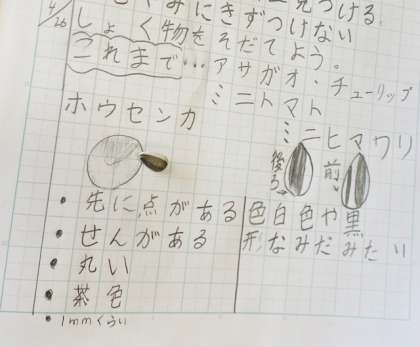 4/26
しょく物をそだてよう。
これまで…アサガオ・チューリップ
ミニトマト
ホウセンカ
ミニヒマワリ
後ろ→
前→
・先に点がある
・せんがある
・丸い
・茶色
・1mmくらい
色白色や黒
形なみだみたい